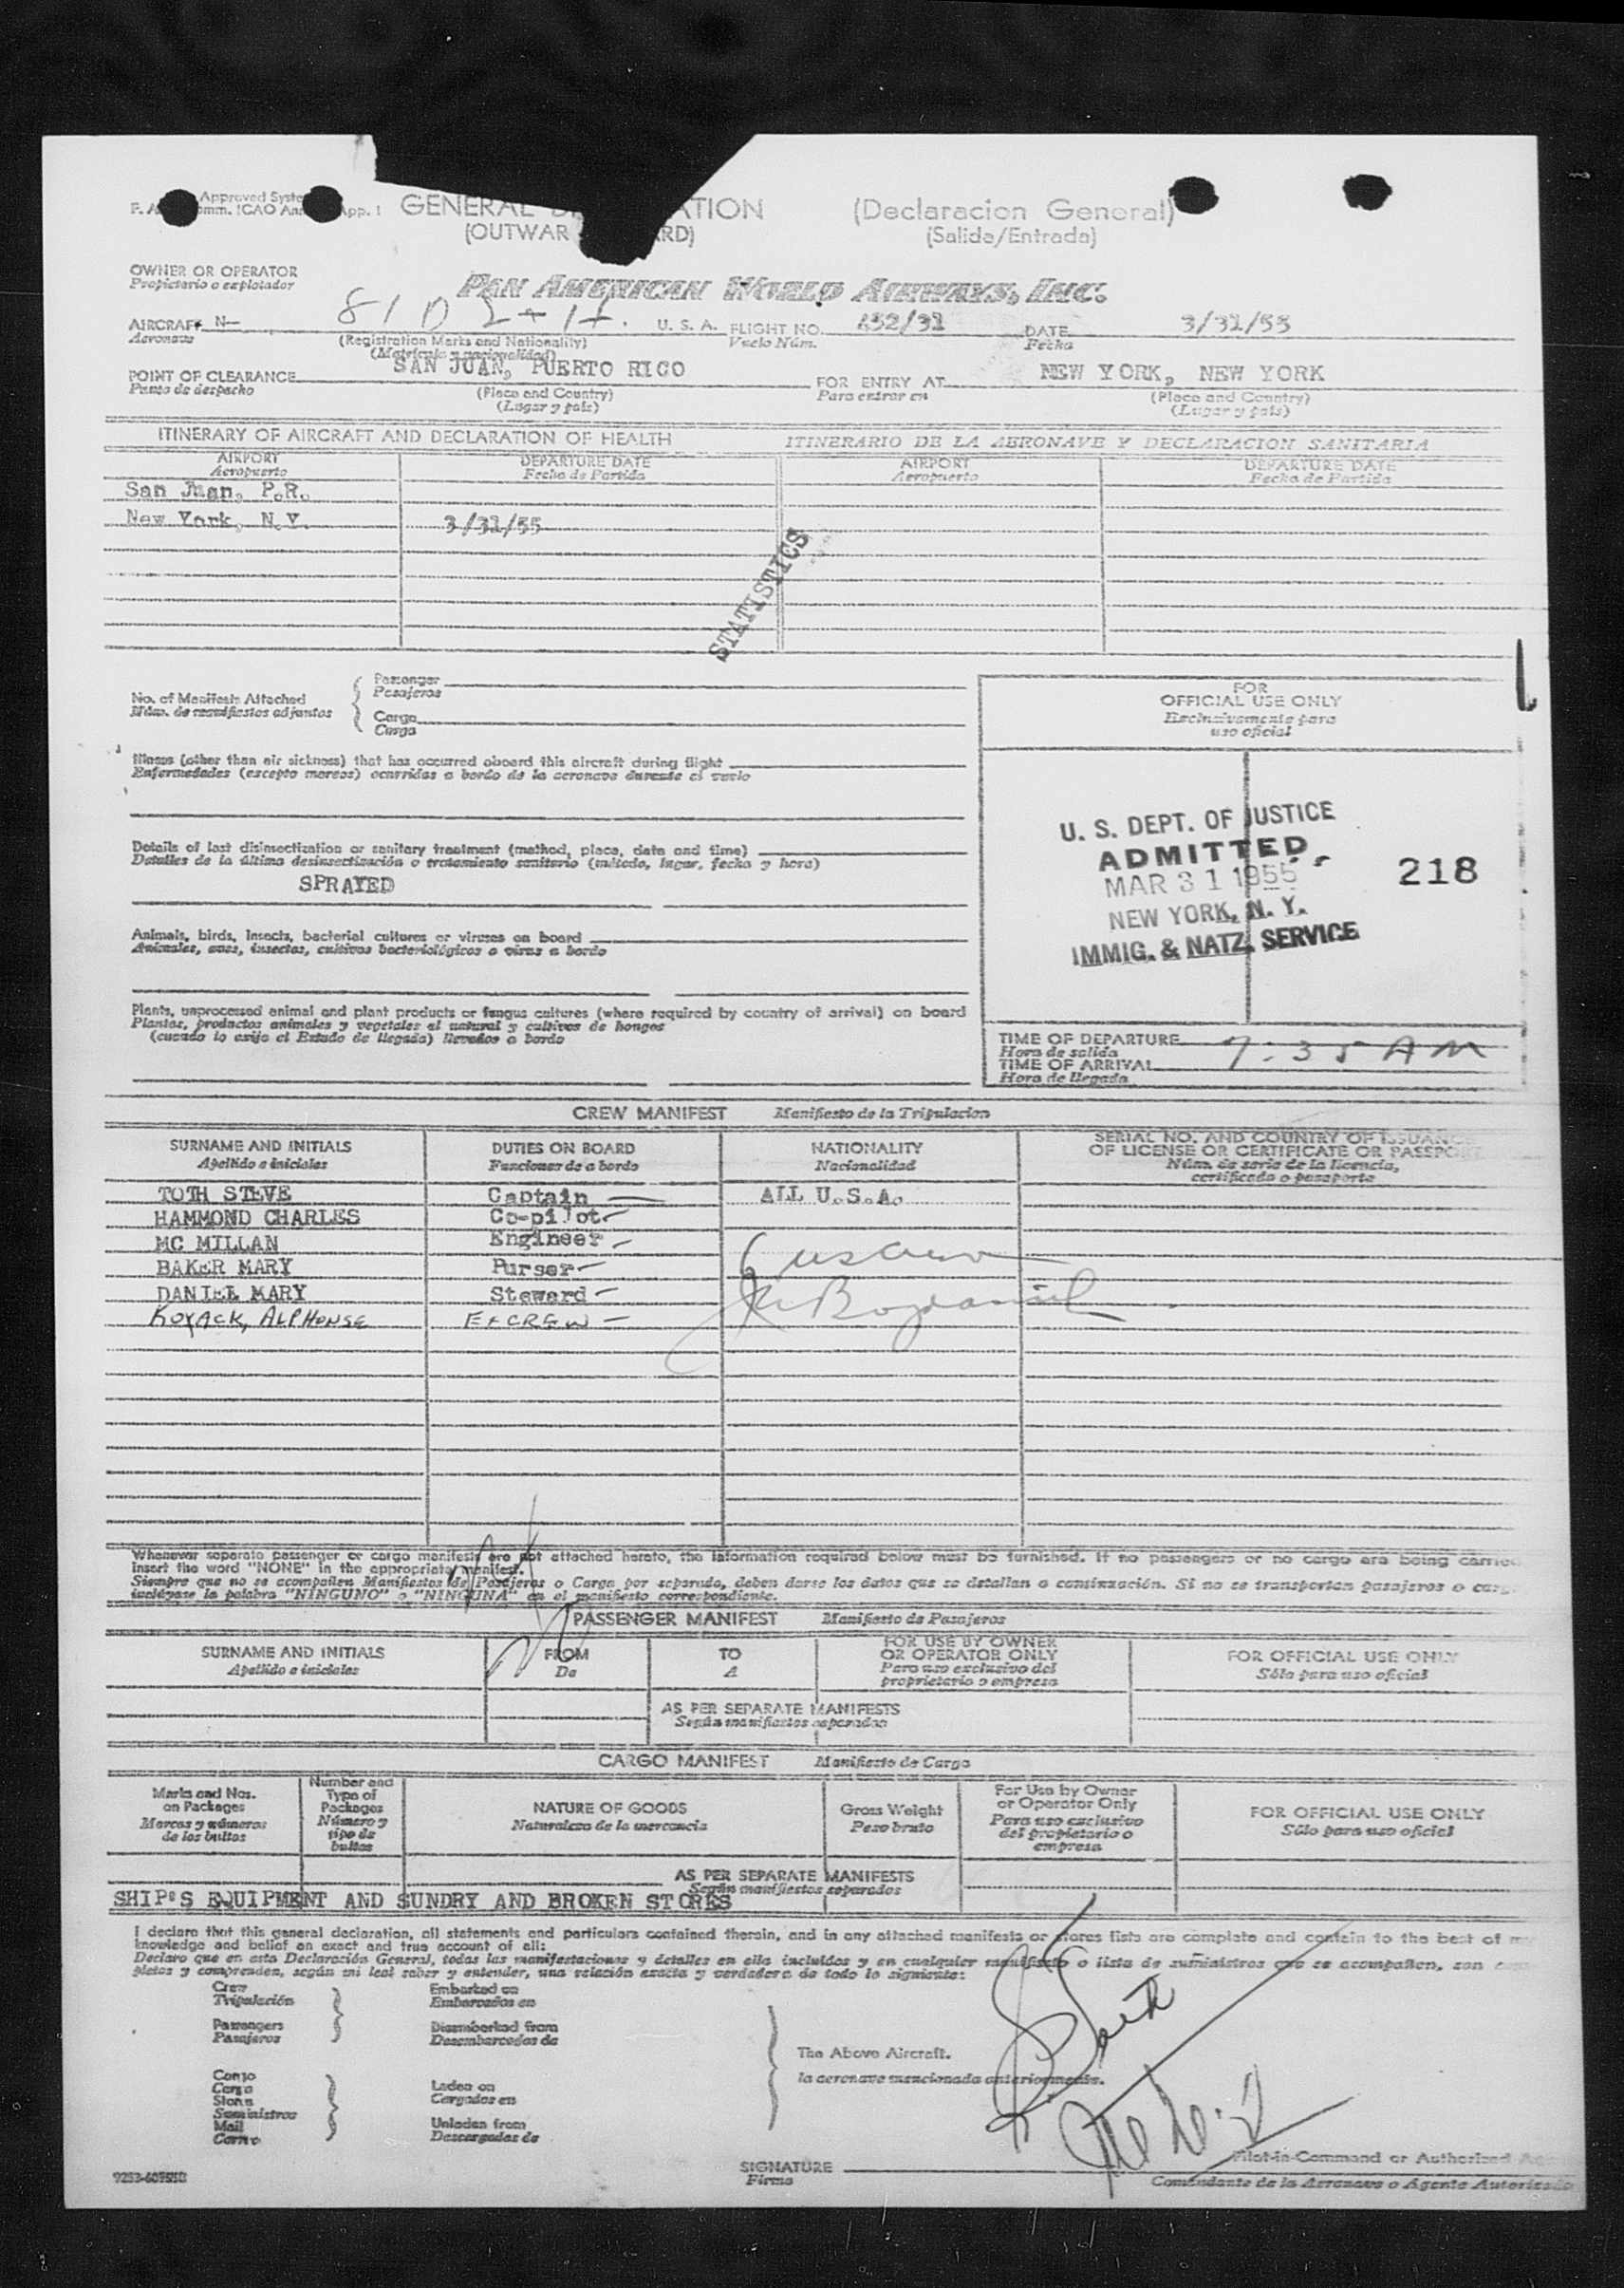 Approved
GENERAL (Declaracion General)
(Salida/Entrada)
OWNER OR OPERATOR
Propietario o explotador
PAN AMERICAN WORLD AIRWAYS, INC.
AIRCRAFT N— U. S. A. FLIGHT NO. DATE 3/31/55
Aeronave (Registration Marks and Nationality) Vuelo Núm. Fecha
(Matrícula y nacionalidad)
POINT OF CLEARANCE SAN JUAN, PUERTO RICO FOR ENTRY AT NEW YORK, NEW YORK
Punto de despacho (Place and Country) Para entrar en (Place and Country)
(Lugar y país) (Lugar y país)
ITINERARY OF AIRCRAFT AND DECLARATION OF HEALTH ITINERARIO DE LA AERONAVE Y DECLARACION SANITARIA
AIRPORT DEPARTURE DATE AIRPORT DEPARTURE DATE
Aeropuerto Fecha de Partida Aeropuerto Fecha de Partida
San Juan, P.R.
New York, N.Y. 3/31/55
STATISTICS
No. of Manifests Attached
Núm. de manifiestos adjuntos
Passenger
Pasajeros
Cargo
Carga
FOR
OFFICIAL USE ONLY
Exclusivamente para
uso oficial
Illness (other than air sickness) that has occurred aboard this aircraft during flight
Enfermedades (excepto mareos) ocurridas a bordo de la aeronave durante el vuelo
Details of last disinsectization or sanitary treatment (method, place, date and time)
Detalles de la última desinsectización o tratamiento sanitario (método, lugar, fecha y hora)
SPRAYED
Animals, birds, insects, bacterial cultures or viruses on board
Animales, aves, insectos, cultivos bacteriológicos o virus a bordo
Plants, unprocessed animal and plant products or fungus cultures (where required by country of arrival) on board
Plantas, productos animales y vegetales al natural y cultivos de hongos
(cuando lo exija el Estado de llegada) llevados a bordo
U. S. DEPT. OF JUSTICE
ADMITTED
MAR 31 1955
NEW YORK, N. Y.
IMMIG. & NATZ. SERVICE
218
TIME OF DEPARTURE
Hora de salida
TIME OF ARRIVAL
Hora de llegada
7:35 AM
CREW MANIFEST Manifiesto de la Tripulacion
SURNAME AND INITIALS DUTIES ON BOARD NATIONALITY SERIAL NO. AND COUNTRY OF ISSUANCE
Apellido e iniciales Funciones de a bordo Nacionalidad OF LICENSE OR CERTIFICATE OR PASSPORT
Núm. de serie de la licencia,
certificado o pasaporte
TOTH STEVE Captain ALL U.S.A.
HAMMOND CHARLES Co-pilot
MC MILLAN Engineer
BAKER MARY Purser
DANIEL MARY Steward
KOYACK, ALPHONSE
Whenever separate passenger or cargo manifests are not attached hereto, the information required below must be furnished. If no passengers or no cargo are being carried
insert the word "NONE" in the appropriate manifest.
Siempre que no se acompañen Manifiestos de Pasajeros o Carga por separado, deben darse los datos que se detallan a continuación. Si no se transportan pasajeros o
inclúyase la palabra "NINGUNO" o "NINGUNA" en el manifiesto correspondiente.
PASSENGER MANIFEST Manifiesto de Pasajeros
SURNAME AND INITIALS FROM TO FOR USE BY OWNER FOR OFFICIAL USE ONLY
Apellido e iniciales De A OR OPERATOR ONLY Sólo para uso oficial
Para uso exclusivo del
propietario o empresa
AS PER SEPARATE MANIFESTS
Según manifiestos separados
CARGO MANIFEST Manifiesto de Carga
Marks and Nos.
on Packages
Marcas y números
de los bultos
Number and
Type of
Packages
Número y
tipo de
bultos
NATURE OF GOODS
Naturaleza de la mercancia
Gross Weight
Peso bruto
For Use by Owner
or Operator Only
Para uso exclusivo
del propietario o
empresa
FOR OFFICIAL USE ONLY
Sólo para uso oficial
AS PER SEPARATE MANIFESTS
Según manifiestos separados
SHIP'S EQUIPMENT AND SUNDRY AND BROKEN STORES
I declare that this general declaration, all statements and particulars contained therein, and in any attached manifests or stores lists are complete and contain to the best of
knowledge and belief an exact and true account of all:
Declaro que en esta Declaración General, todas las manifestaciones y detalles en ella incluidos y en cualquier manifiesto o lista de suministros que se acompañen, son
pletos y comprenden, según mi leal saber y entender, una relación exacta y verdadera de todo lo siguiente:
Crew
Tripulación
Passengers
Pasajeros
Embarked on
Embarcados en
Disembarked from
Desembarcados de
Cargo
Carga
Stores
Suministros
Mail
Correo
Laden on
Cargados en
Unladen from
Descargados de
The Above Aircraft.
la aeronave mencionada anteriormente.
SIGNATURE
Firma
Pilot-in-Command or Authorized
Comandante de la Aeronave o Agente Autorizado